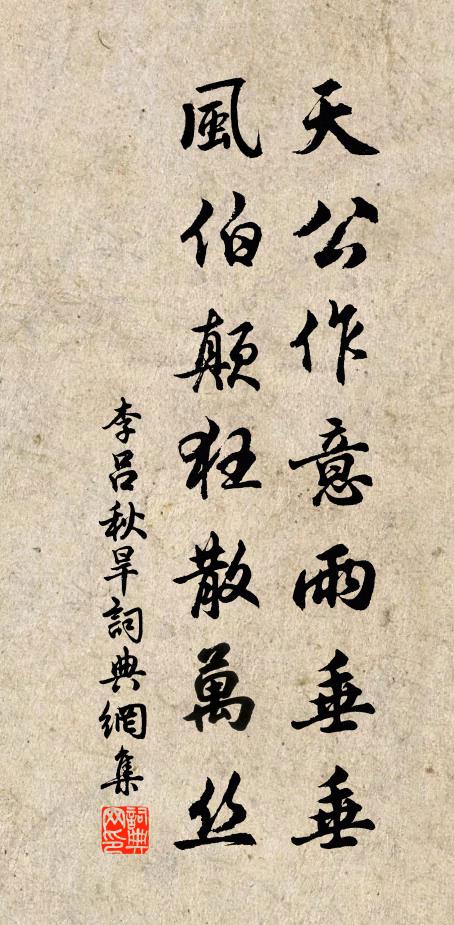 天公作意雨垂垂
風伯顛狂散萬丝
李呂秋旱詞典網集
詞典网印